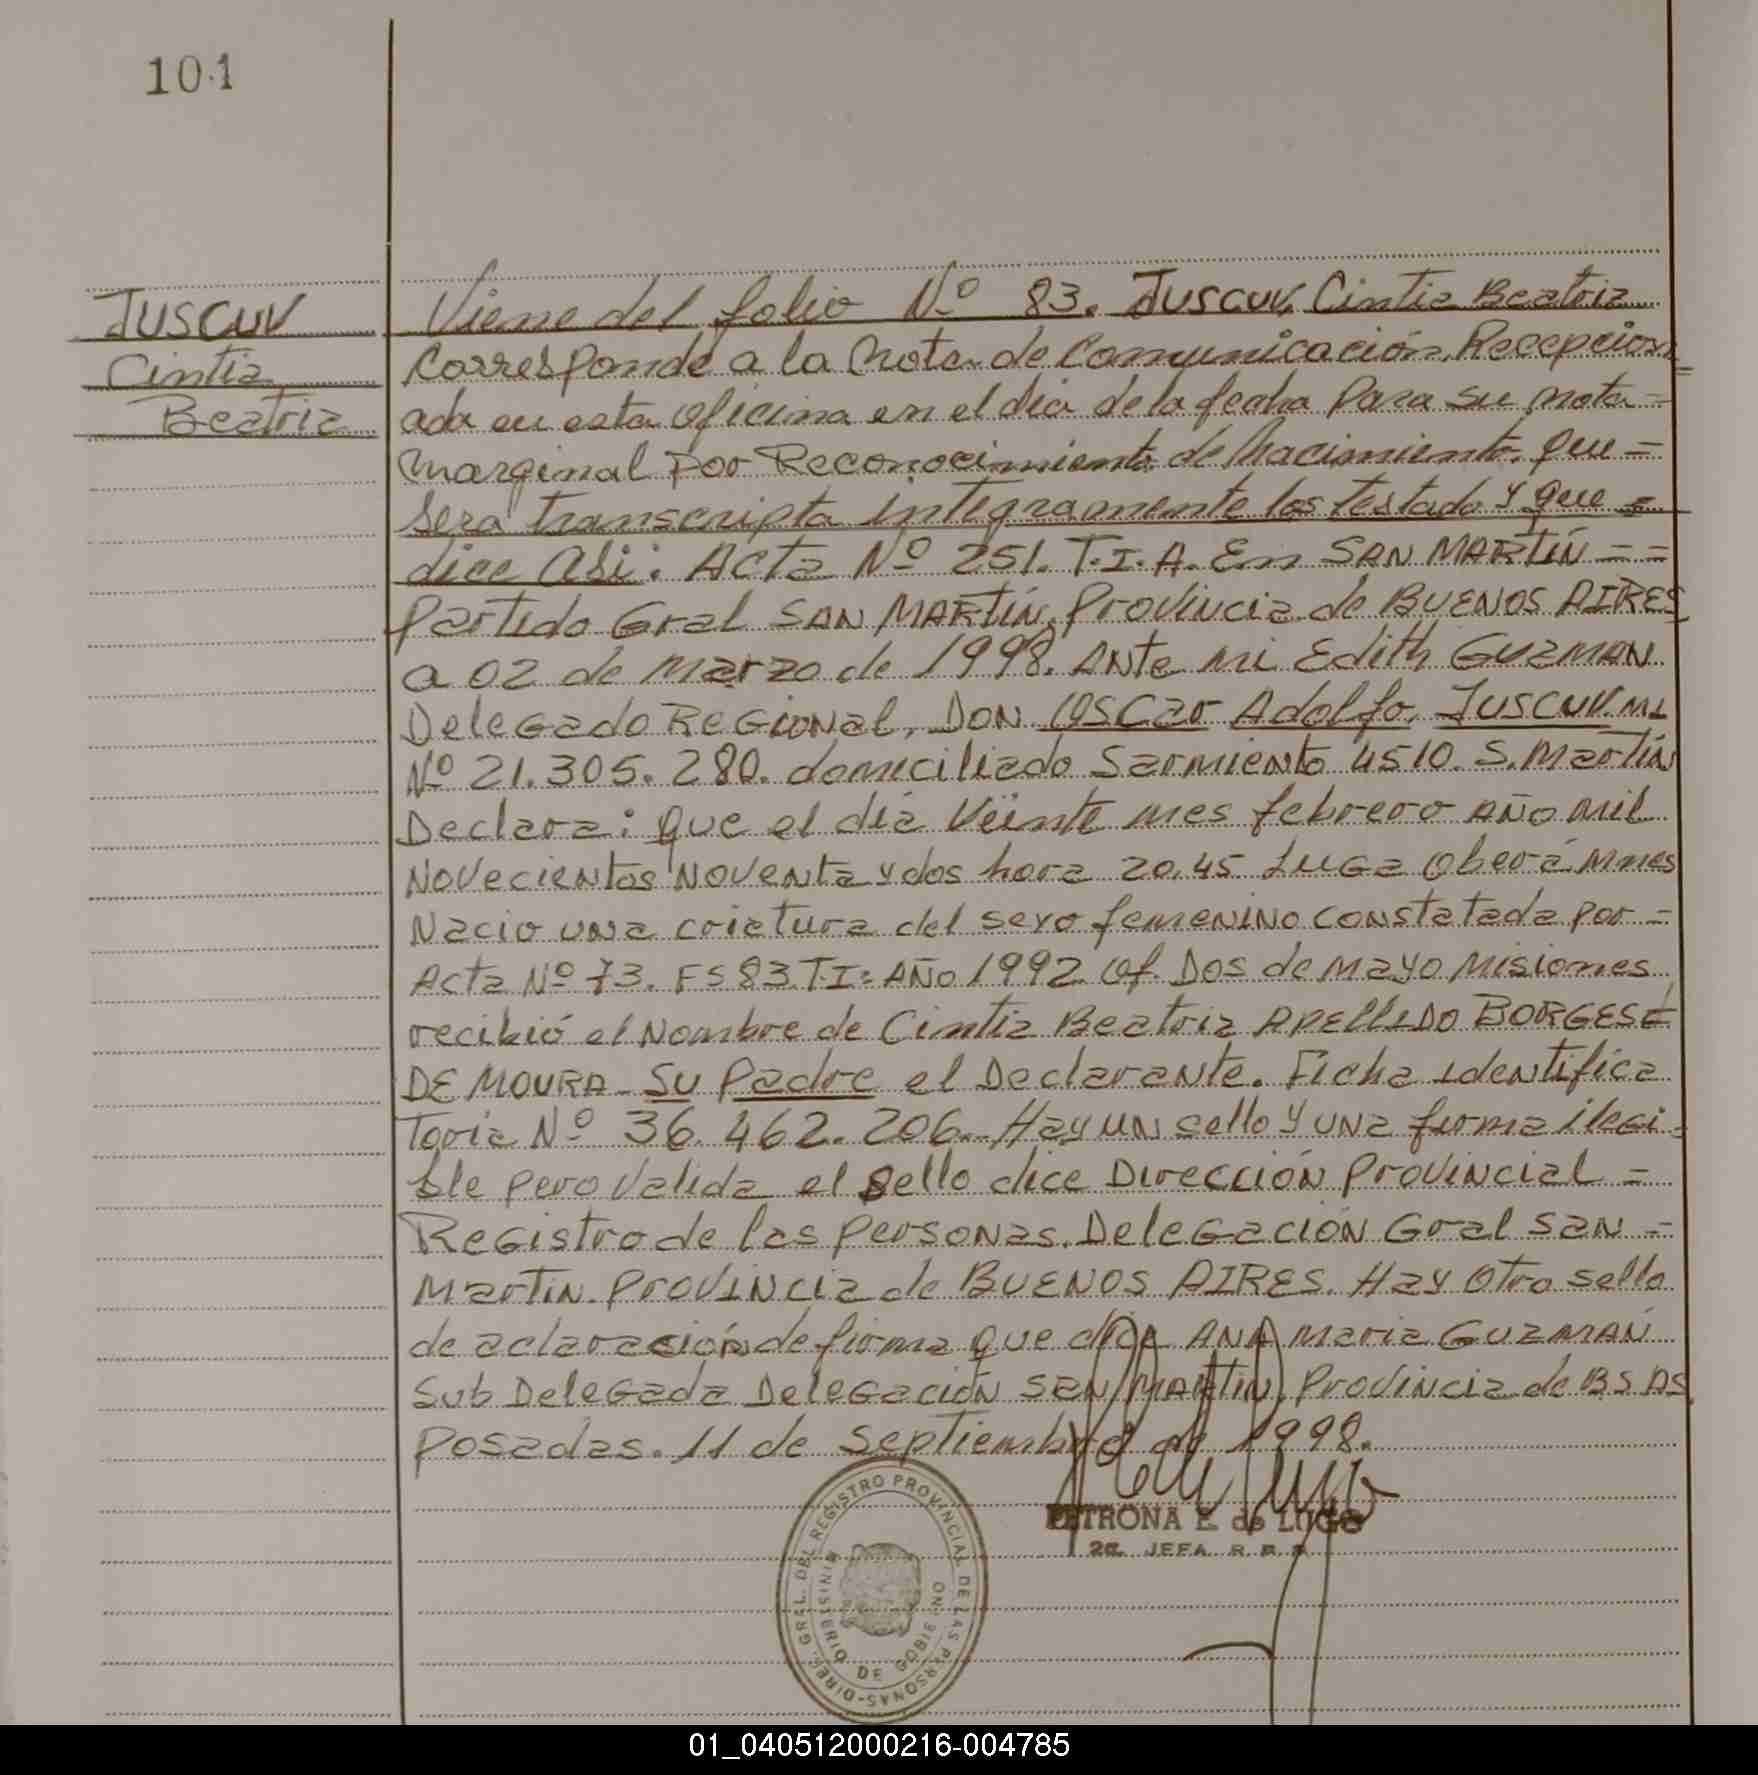 101
JUSCUV
Cintia
Beatriz
Viene del folio Nº 83. JUSCUV, Cintia Beatriz
Corresponde a la Nota de Comunicación, Recepcion=
ada en esta oficina en el dia de la fecha para su nota=
Marginal por Reconocimiento de Nacimiento, que=
sera transcripta integramente los testado y que=
dice asi: Acta Nº 251. T.I.A. En SAN MARTÍN = =
Partido Gral SAN MARTÍN, Provincia de BUENOS AIRES
a 02 de marzo de 1998. Ante mi Edith GUZMAN
Delegado Regional, DON OSCAR Adolfo, JUSCUV. MI
Nº 21.305.280. domiciliado Sarmiento 4510. S. Martín
Declara: que el día Veinte mes febrero AÑO mil
Novecientos Noventa y dos hora 20.45 LUGa Oberá Mnes
Nacio una criatura del sexo femenino constatada por=
Acta Nº 73. FS 83. T.I: AÑO 1992 Of. Dos de mayo Misiones
recibió el Nombre de Cintia Beatriz APELLIDO BORGES=
DE MOURA - Su Padre el Declarante. Ficha identifica
toria Nº 36.462.206. Hay un sello y una firma ilegi=
ble pero valida el sello dice Dirección Provincial =
Registro de las personas. Delegación Gral SAN =
Martin. Provincia de BUENOS AIRES. Hay Otro sello
de aclaración de firma que dice ANA Maria GUZMAN
Sub Delegada Delegación SAN MARTIN, Provincia de BS AS
Posadas. 11 de Septiembre de 1998.
PETRONA E. de LUGO
2a. JEFA R. P. P.
DIREC. GRAL. DEL REGISTRO PROVINCIAL DE LAS PERSONAS
MINISTERIO DE GOBIERNO
01_040512000216-004785